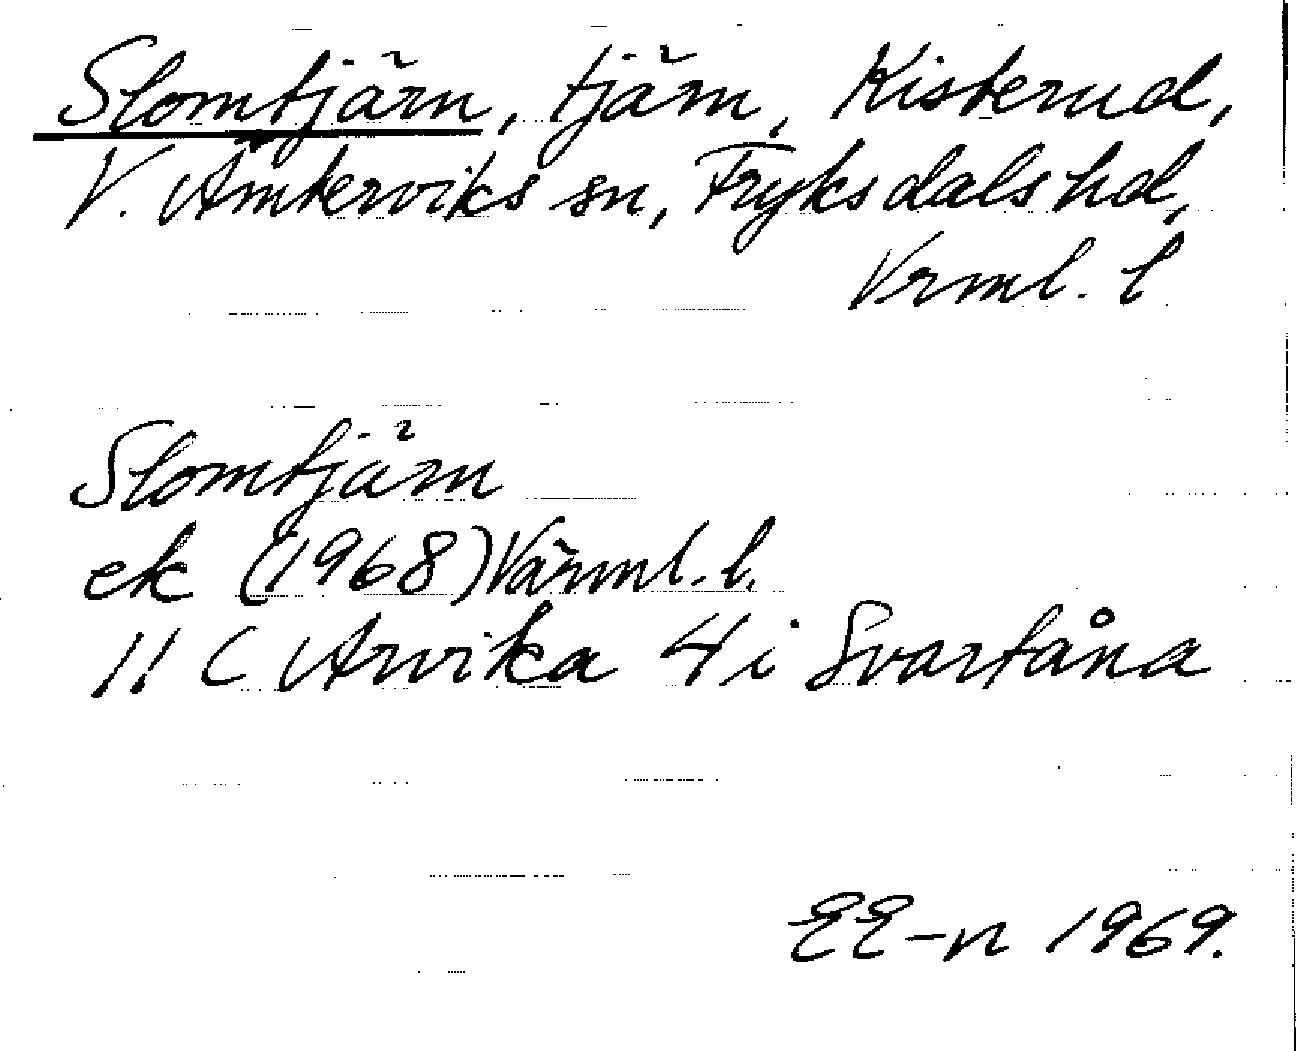 Slomtjärn, tjärn, Kisterud,
V. Ämterviks sn, Fryksdals hd,
Vrml. l
Slomtjärn
ek (1968) Värml. l.
11 C Arvika 4 i Svartåna
EE-n 1969.